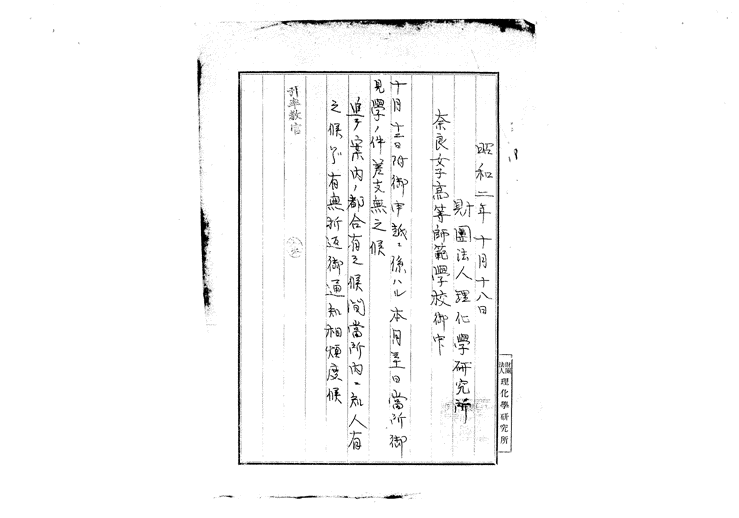 昭和二年十月十八日
財團法人理化學研究所
奈良女子高等師範學校御中
十月十三日附御申越ニ係ハル本月 日當所御
見學ノ件差支無之候
追テ案内ノ都合有之候間當所内ニ知人有
之候ハヾ有無折返御通知相煩度候
引率教官
財團法人 理化學研究所